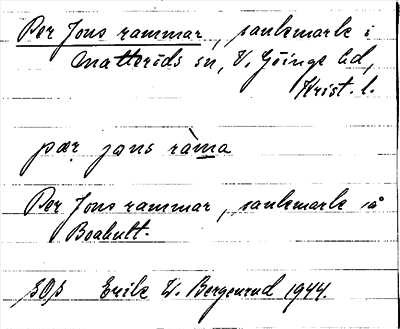 Per Jons rammar, sankmark i
Matteröds sn, V. Göinge hd,
Krist. l.
pær jɑns ràma
Per Jons rammar, sankmark på
Boahult.
sOs Erik W. Bergenrud 1944.